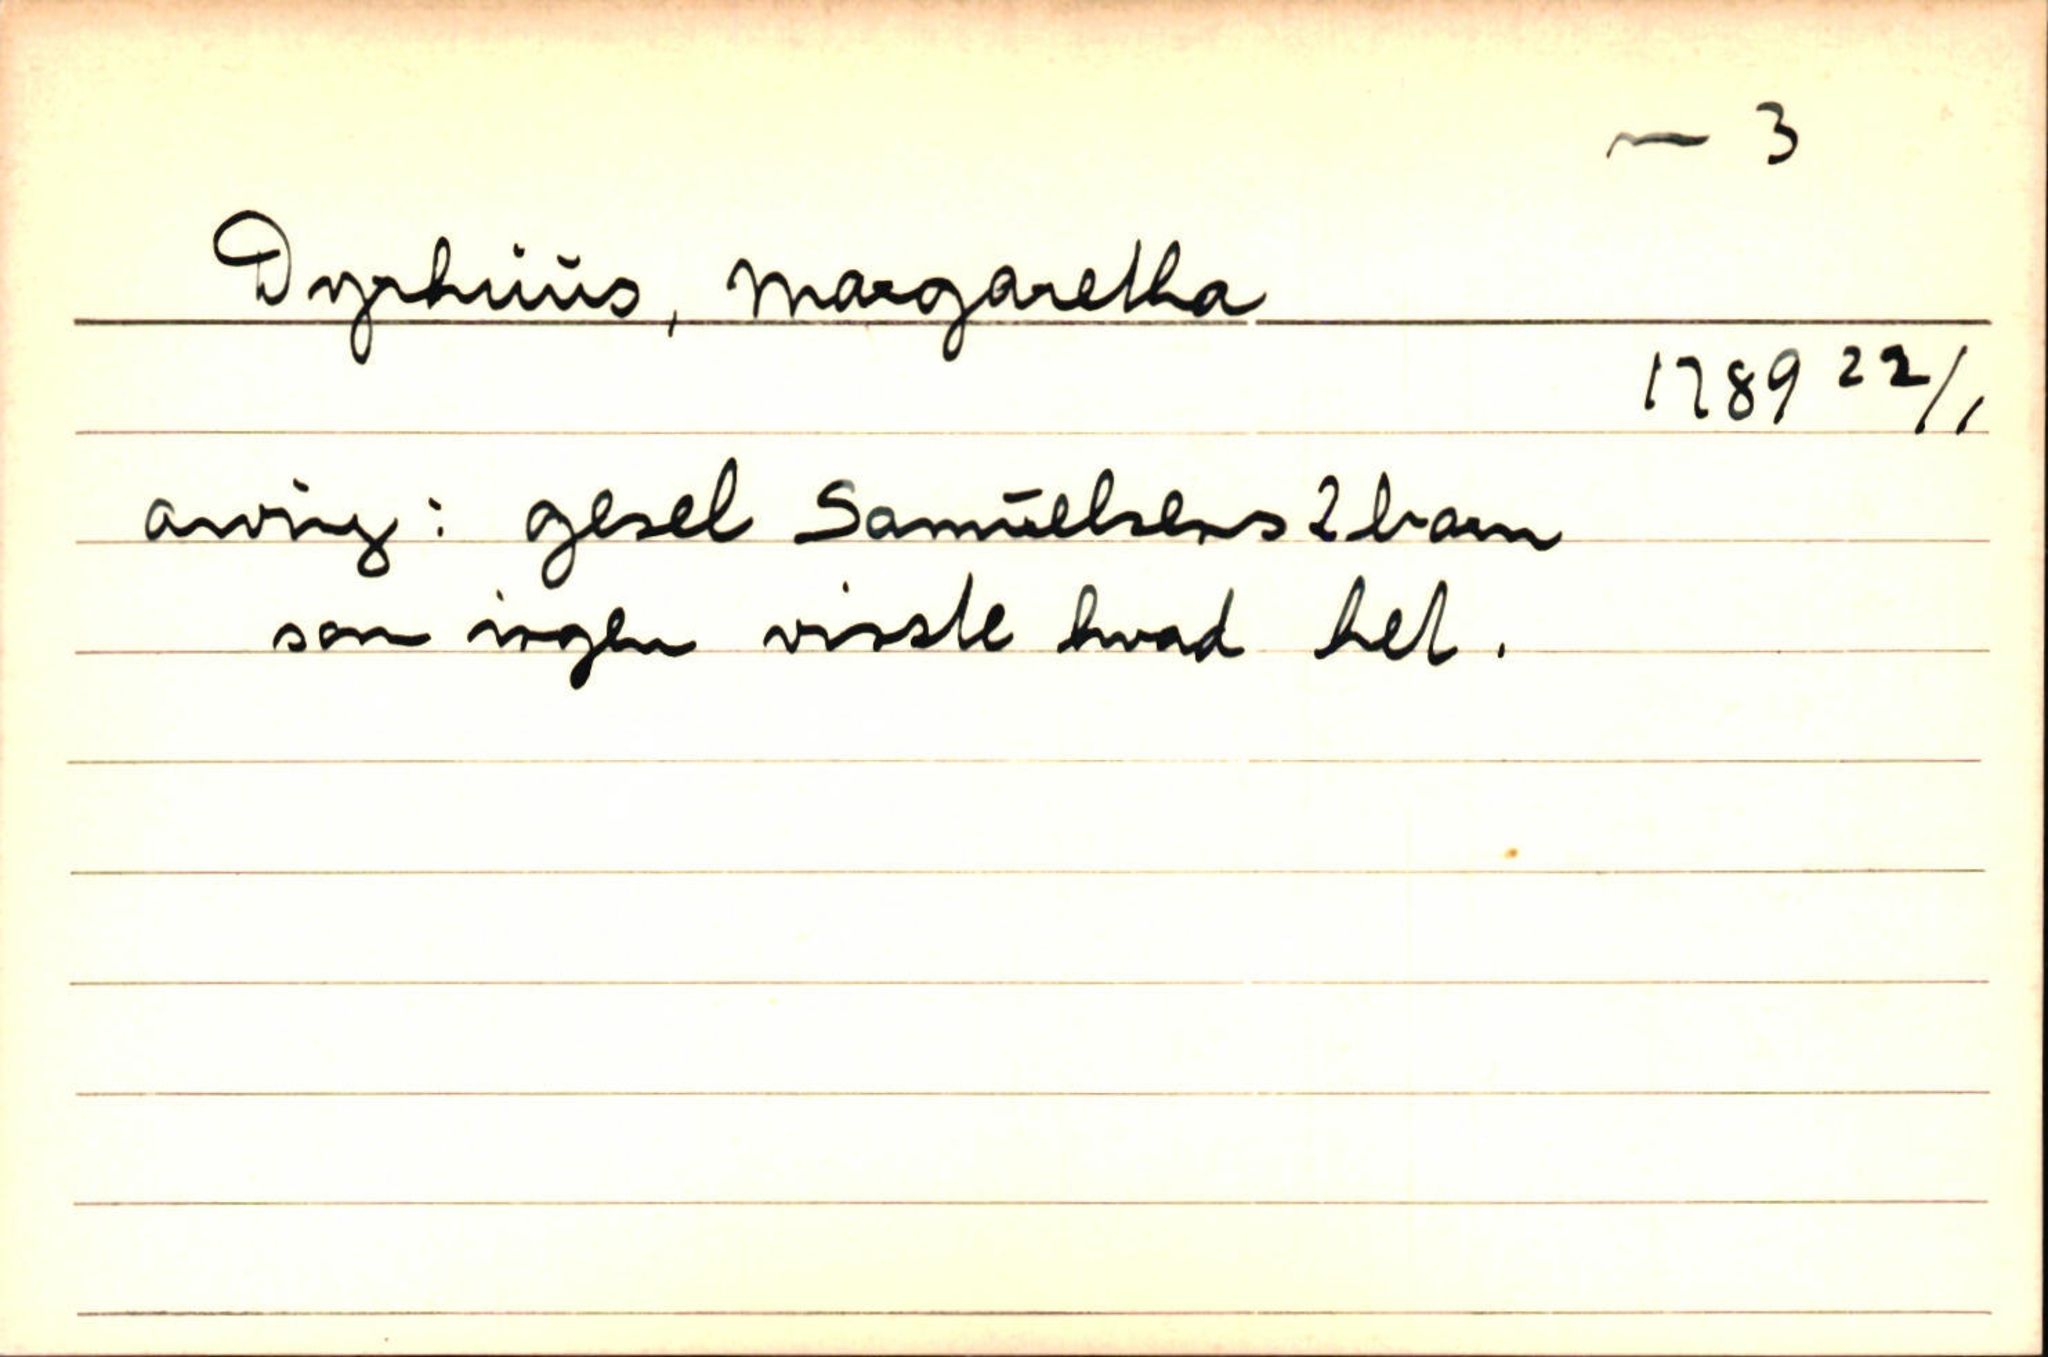 — 3
Dyrhuus, Margaretha
1789 22/1
arving: gesel Samuelsens 2 barn
som ingen visste hvad het.